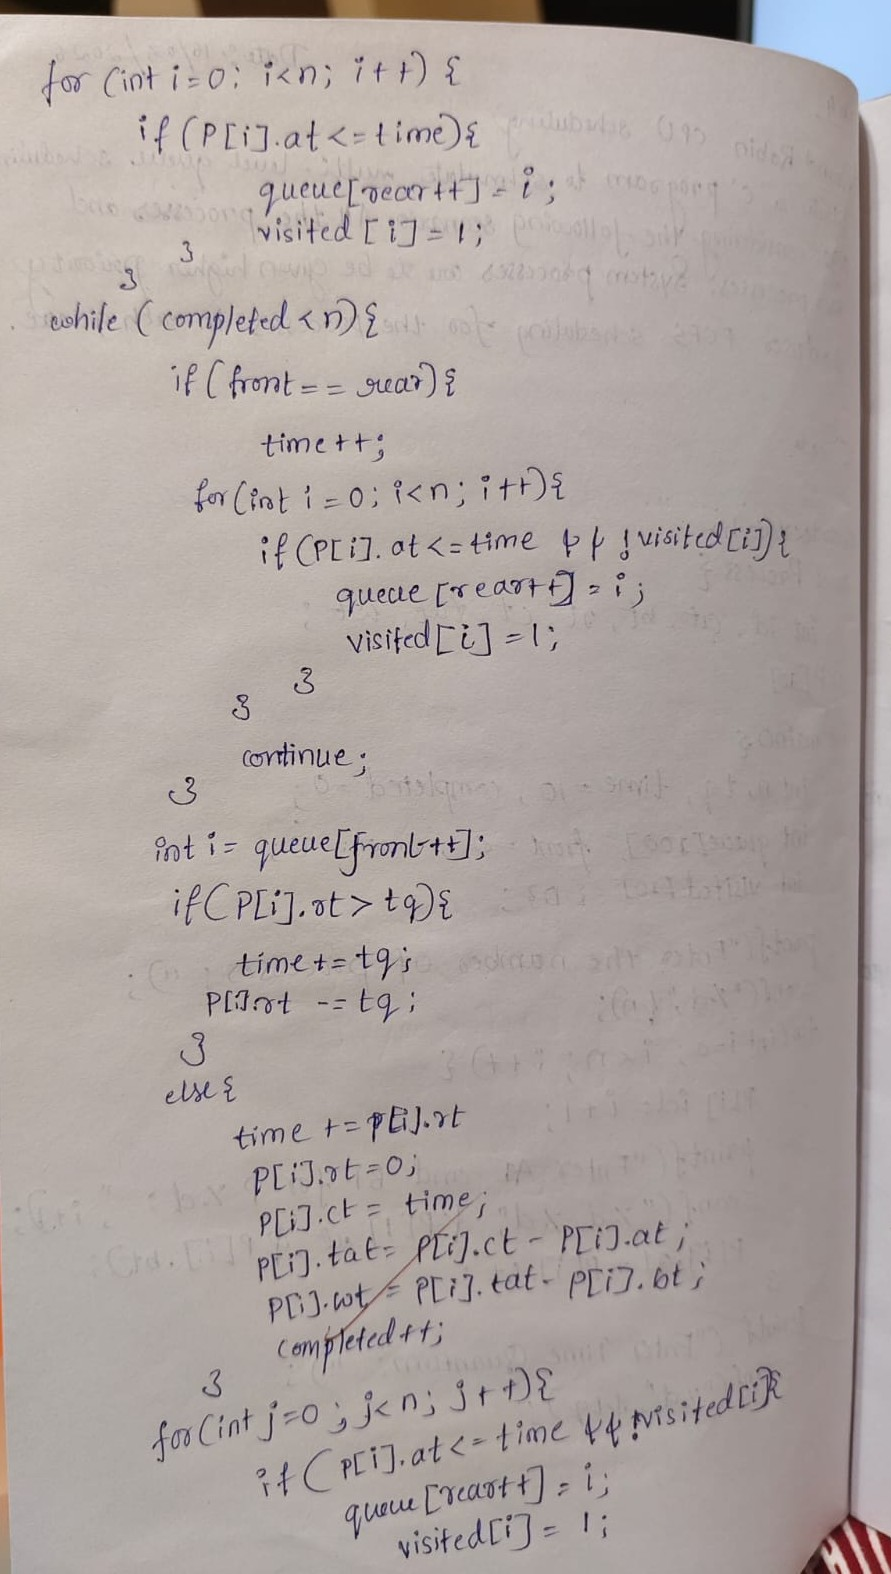 for (int i=0; i<n; i++) {
if (P[i].at <= time){
queue[rear++] = i;
visited [i] = 1;
}
}
while (completed < n){
if (front == rear){
time++;
for(int i = 0; i<n; i++){
if (P[i]. at <= time && !visited[i]){
queue [rear++] = i;
visited[i] = 1;
}
}
continue;
}
int i = queue[front++];
if(P[i].rt > tq){
time += tq;
P[i].rt -= tq;
}
else{
time += P[i].rt
P[i].rt = 0;
P[i].ct = time;
P[i].tat = P[i].ct - P[i].at;
P[i].wt = P[i].tat - P[i].bt;
completed++;
}
for(int j=0; j<n; j++){
if (P[i].at <= time && !visited[i]{
queue [rear++] = i;
visited[i] = 1;